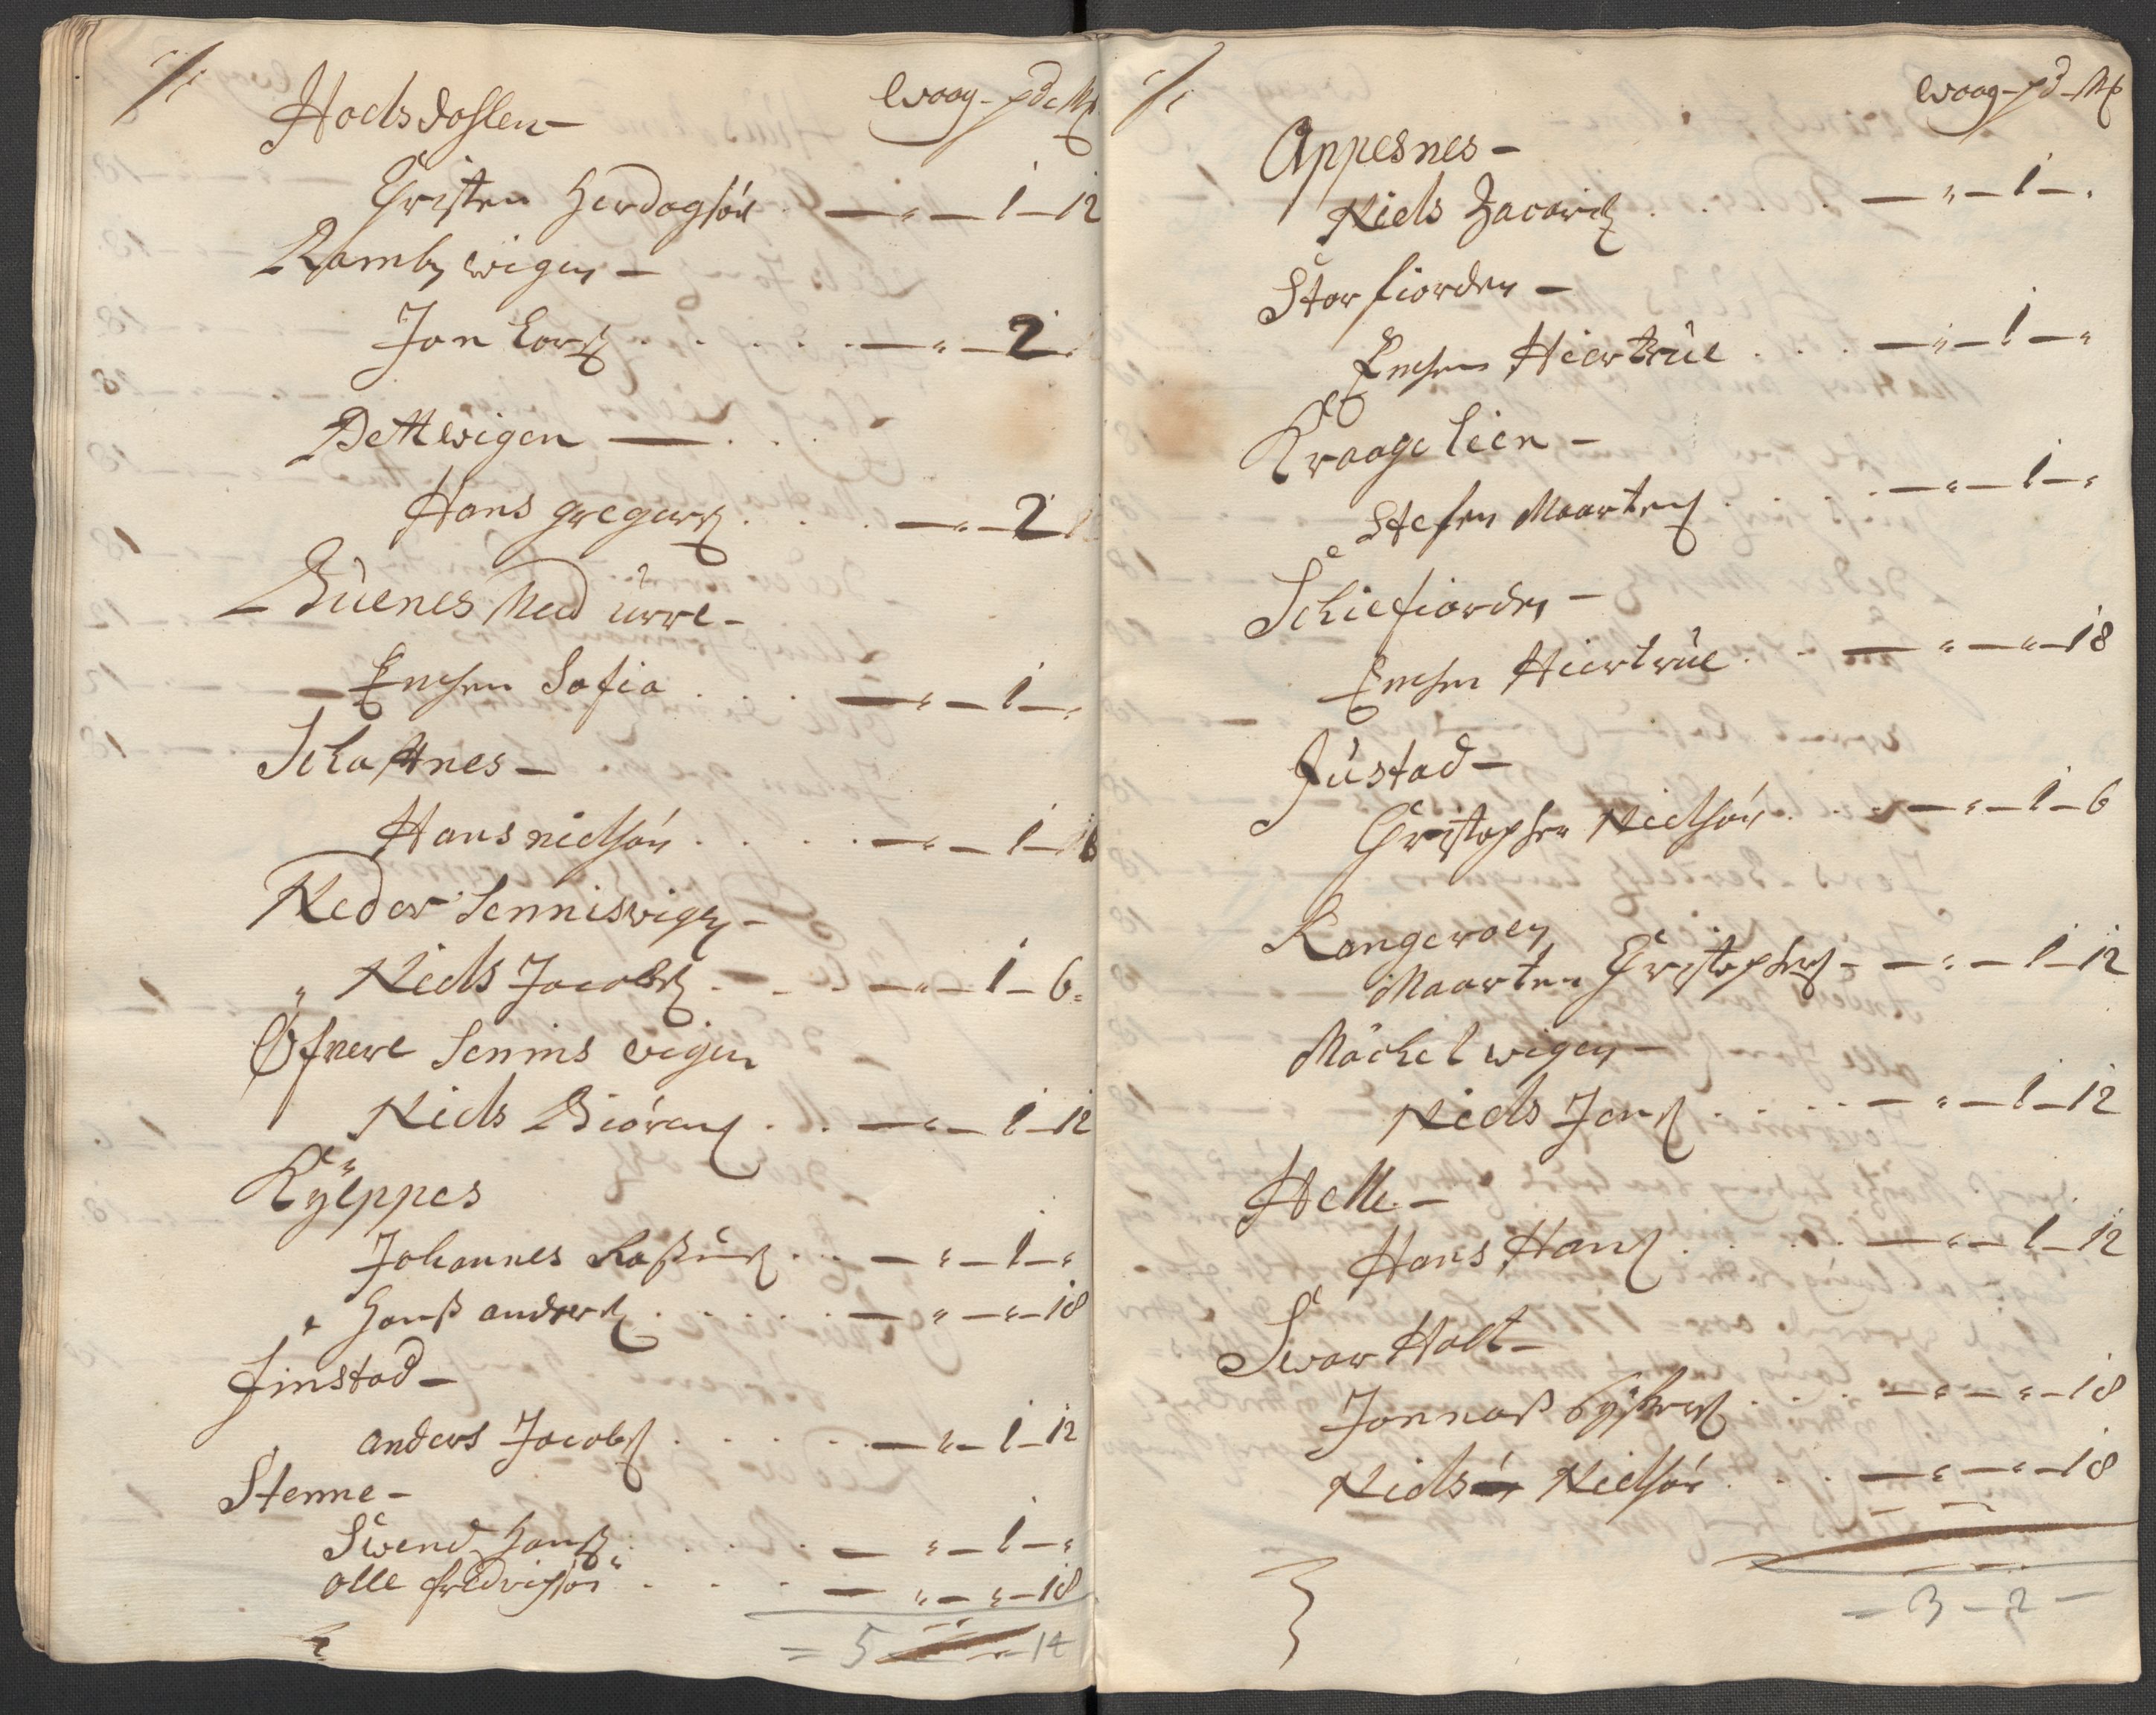 Woog - pd - Mk
Hoelsdahlen -
Christen Herdagsön . — " — 1 — 12
Ramb wigen —
Jon Larß . . . . . — " — 2 —
Pettwigen — . . .
Hans gregerß . . . — " — 2
Buenes Med ürre -
Enchen Sofia . . . — " — 1 — "
Schaftnes —
Hans nielsön . . . . — " — 1 — 6
Neder Senniswigen —
" Niels Jacobß . — . — " — 1 — 6 -
Øfnere Sennis vigen
Niels Biörenß . . — " — 1 — 12
Kylppes
Johannes Raßmuß . . — " — 1 — "
" Hanß anderß . . . . . — " — " — 18
Finstad —
anders Jacobß . . . . . — " — 1 — 12
Stenne -
Swend Hanß . . . . . — " — 1 — "
olle fredrichsön . . . — " — " — 18
= 5 — 14
Woog - pd - Mk
Appesnes -
Niels Zacariß . . . . — " — 1 — "
Storfiorden —
Enchen Hiertrüe . . . — " — 1 — "
Kraage lien —
Stefen Maartenß . . . . — " — 1 — "
Schiefiorden —
Enchen Hiertrüe . . — " — " — 18
Jüstad —
Christopher Nielsön . . . — " — 1 — 6
Rangeroen
Maarten Christopherß — — " — 1 — 12
Mächelwigen —
Niels Jonß . . . . — " — 1 — 12
Helle —
Hans Hanß . . . . . — " — 1 — 12
Swar Holt —
Jonnaß . . . — " — " — 18
Niels Nielsön . . . — " — " — 18
— 3 — 2 —